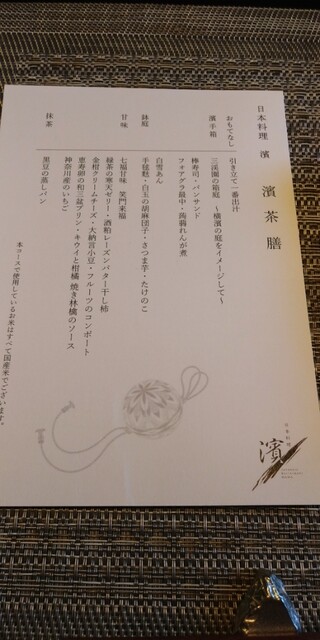 日本料理 濱 濱茶膳
おもてなし 引き立て一番出汁
濱手箱 三渓園の箱庭 ～横濱の庭をイメージして～
棒寿司・パンサンド
フォアグラ最中・蒟蒻れんが煮
鉢庭 白雪あん
手毬麩・白玉の胡麻団子・さつま芋・たけのこ
甘味 七福甘味 笑門来福
緑茶の寒天ゼリー・酒粕レーズンバター干し柿
金柑クリームチーズ・大納言小豆・フルーツのコンポート
恵寿卵の和三盆プリン・キウイと柑橘 焼き林檎のソース
神奈川産のいちご
抹茶 黒豆の蒸しパン
本コースで使用しているお米はすべて国産米でございます。
日本料理
濱